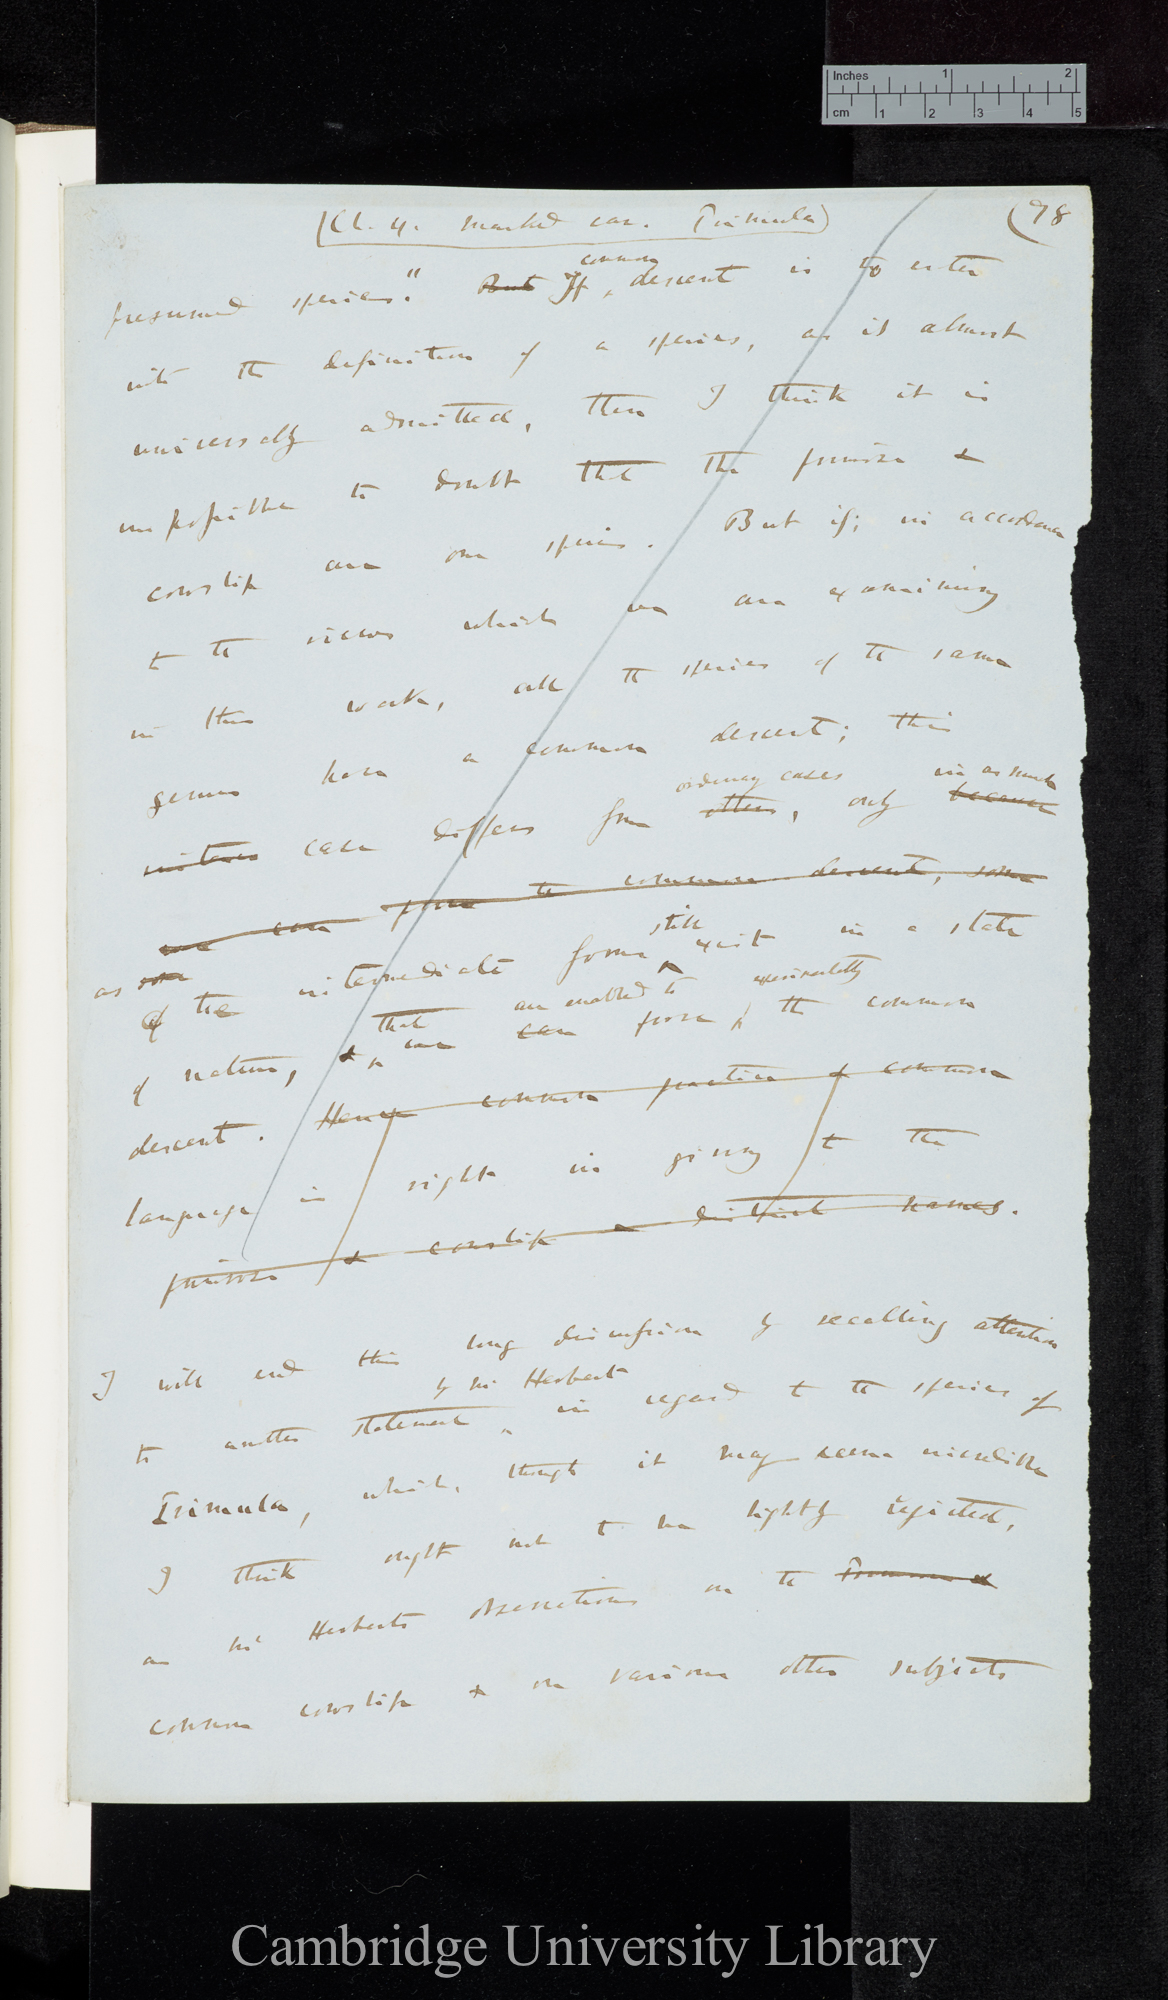 Inches 1 2
cm 1 2 3 4 5
(Ch. 4. marked var. Primula)
(98
common
presumed species." But If descent is to enter
into the definition of a species, as is almost
universally admitted, then I think it is
impossible to doubt that the primrose &
cowslip are one species. But if, in accordance
to the views which we are examining
in this work, all the species of the same
genus have a common descent; this
ordinary cases in as much
case differs from others, only because
we can prove the common descent, some
still
as some intermediate forms exist in a state
of the
that are enabled to experimentally
of nature, & we can prove the common
descent. Hence common practice & common
language is right in giving to the
primrose & cowslip distinct names.
I will end this long discussion by recalling attention
by Mr Herbert
to another statement in regard to the species of
Primula, which, though it may seem incredible
I think ought not to be lightly rejected,
as Mr Herberts observations on the
common cowslip & on various other subjects
Cambridge University Library